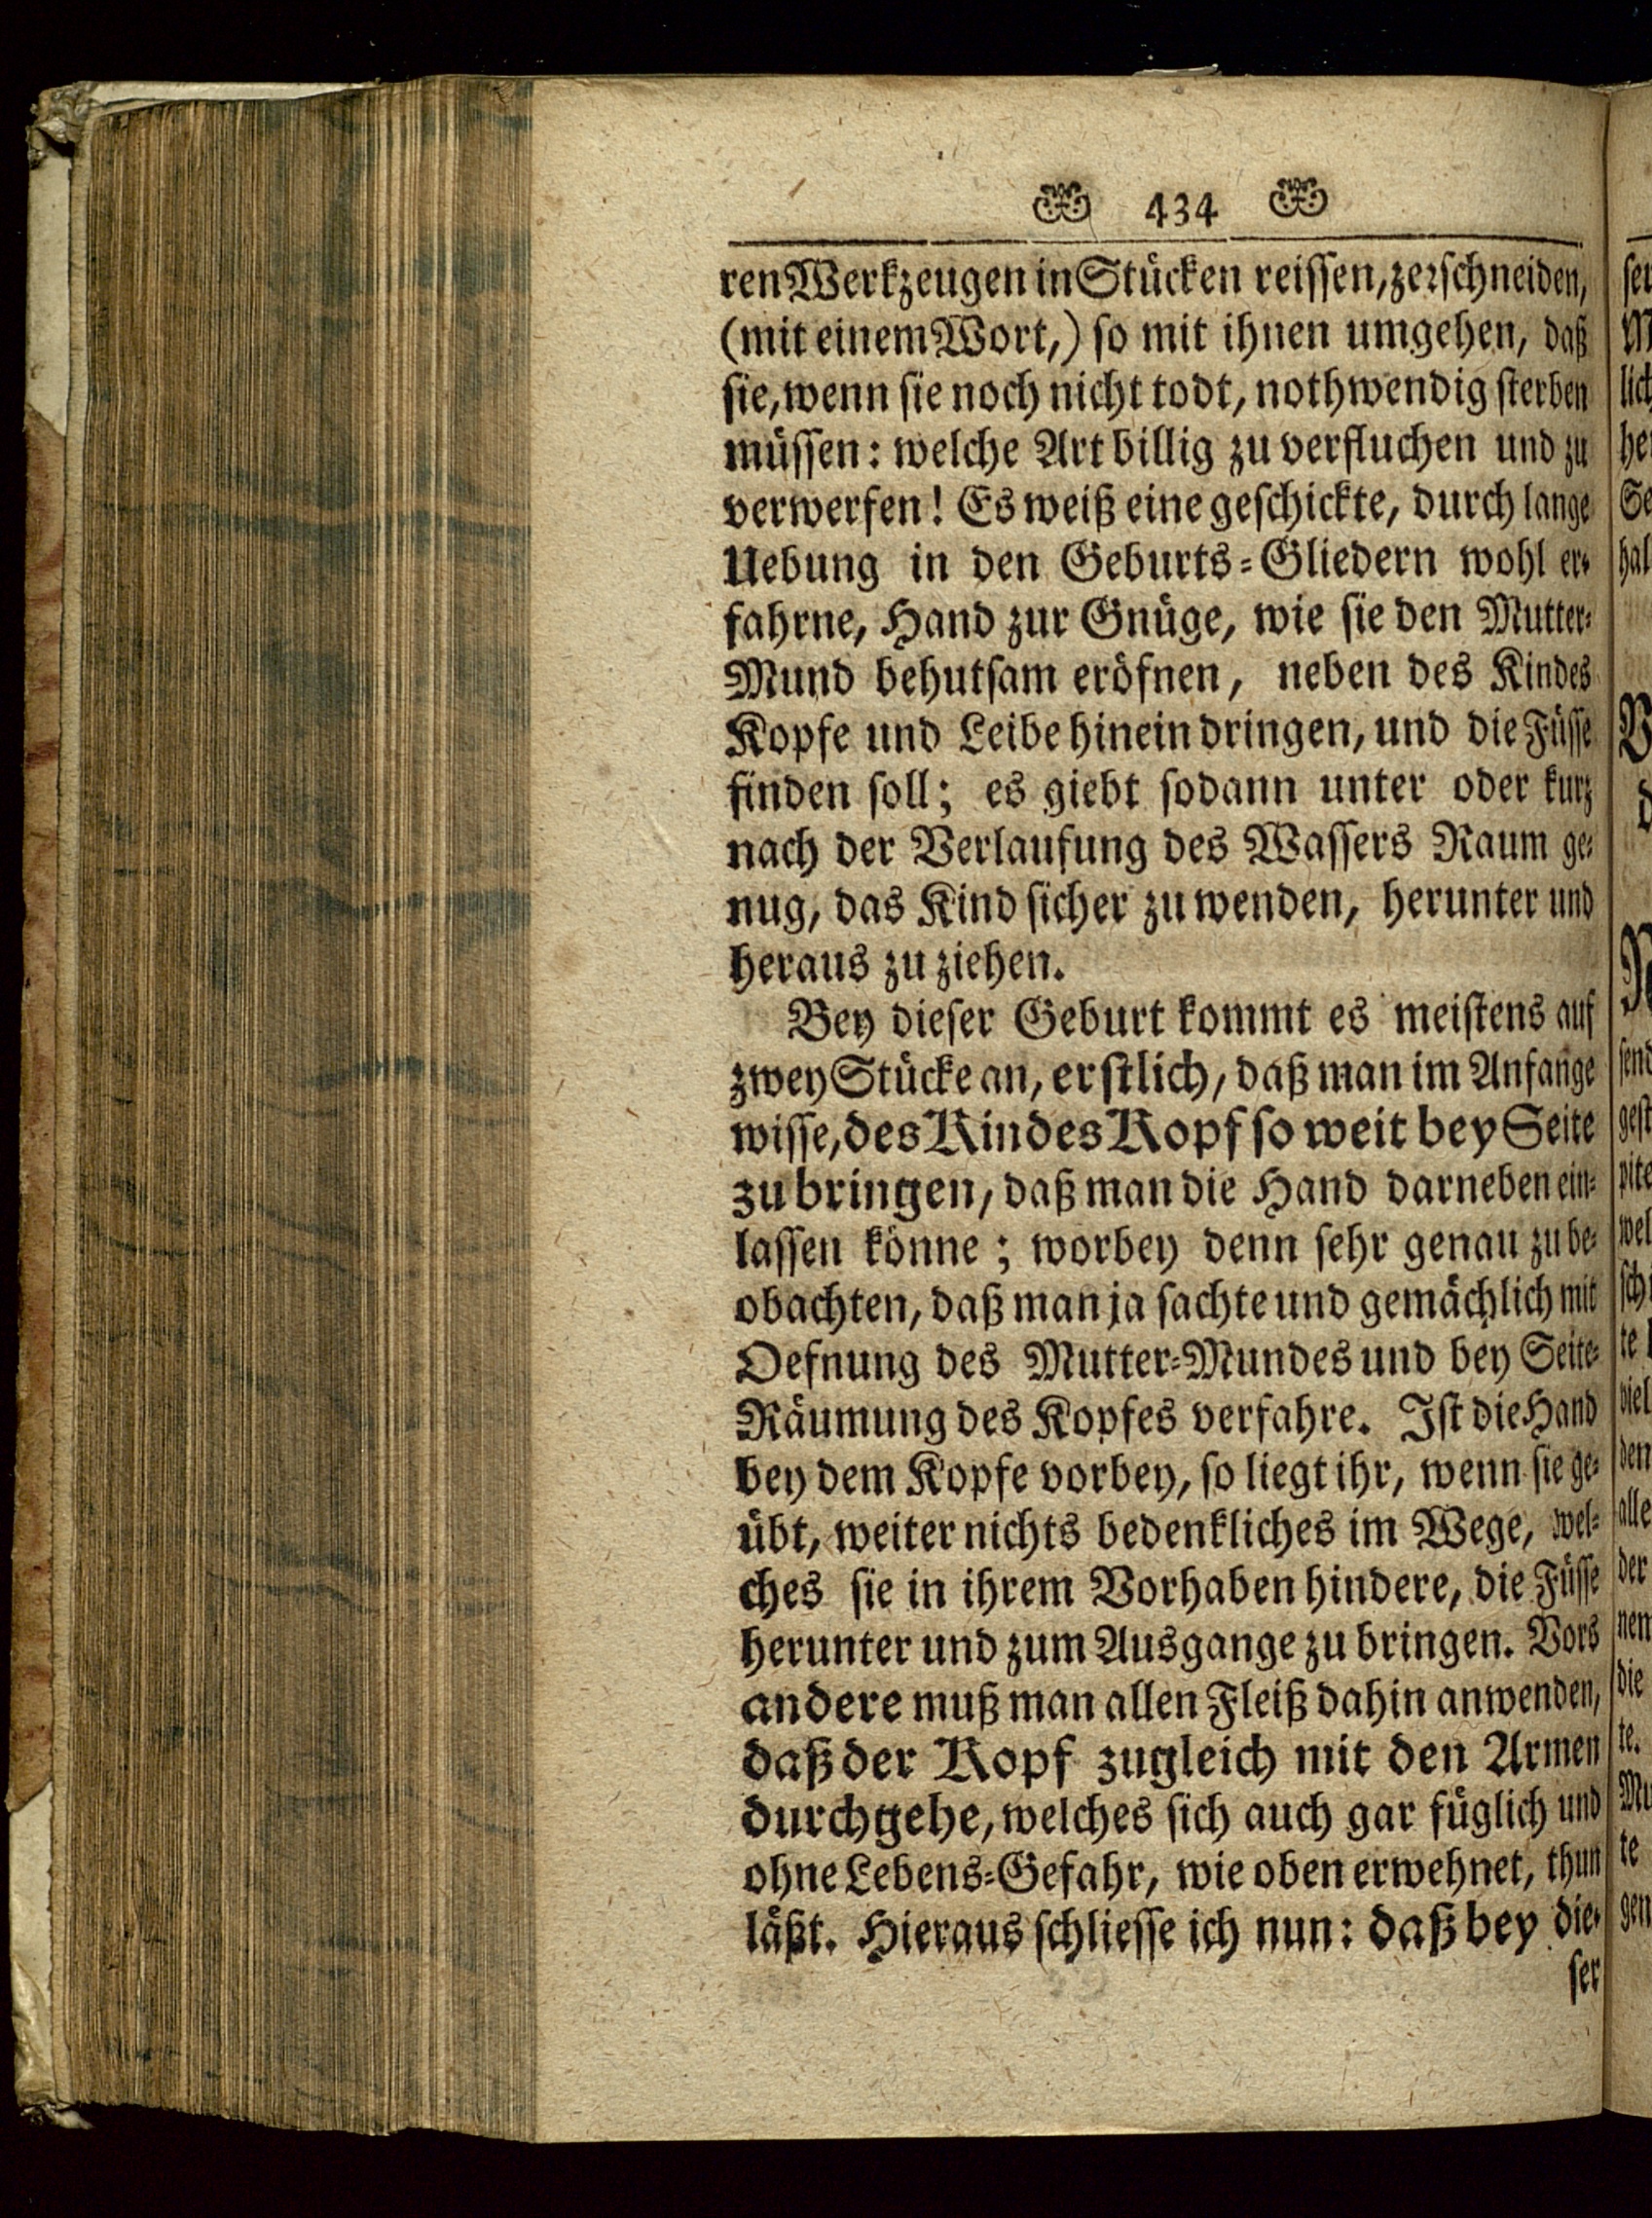 434
ren Werkzeugen in Stücken reissen, zerschneiden,
(mit einem Wort,) so mit ihnen umgehen, daß
sie, wenn sie noch nicht todt, nothwendig sterben
müssen: welche Art billig zu verfluchen und zu
verwerfen! Es weiß eine geschickte, durch lange
Uebung in den Geburts-Gliedern wohl er-
fahrne, Hand zur Gnüge, wie sie den Mutter-
Mund behutsam eröfnen, neben des Kindes
Kopfe und Leibe hinein dringen, und die Füsse
finden soll; es giebt sodann unter oder kurz
nach der Verlaufung des Wassers Raum ge-
nug, das Kind sicher zu wenden, herunter und
heraus zu ziehen.
Bey dieser Geburt kommt es meistens auf
zwey Stücke an, erstlich, daß man im Anfange
wisse, des Kindes Kopf so weit bey Seite
zu bringen, daß man die Hand darneben ein-
lassen könne; worbey denn sehr genau zu be-
obachten, daß man ja sachte und gemächlich mit
Oefnung des Mutter-Mundes und bey Seite-
Räumung des Kopfes verfahre. Ist die Hand
bey dem Kopfe vorbey, so liegt ihr, wenn sie ge-
übt, weiter nichts bedenkliches im Wege, wel-
ches sie in ihrem Vorhaben hindere, die Füsse
herunter und zum Ausgange zu bringen. Vors
andere muß man allen Fleiß dahin anwenden,
daß der Kopf zugleich mit den Armen
durchgehe, welches sich auch gar füglich und
ohne Lebens-Gefahr, wie oben erwehnet, thun
läßt. Hieraus schliesse ich nun: daß bey die-
ser